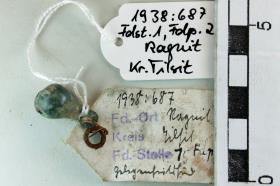 1938:687
Fdst. 1, Fdp. 2
Ragnit
Kr. Tilsit
1938:687
Fd.-Ort Ragnit
Kreis Tilsit
Fd.-Stelle 1
5
0